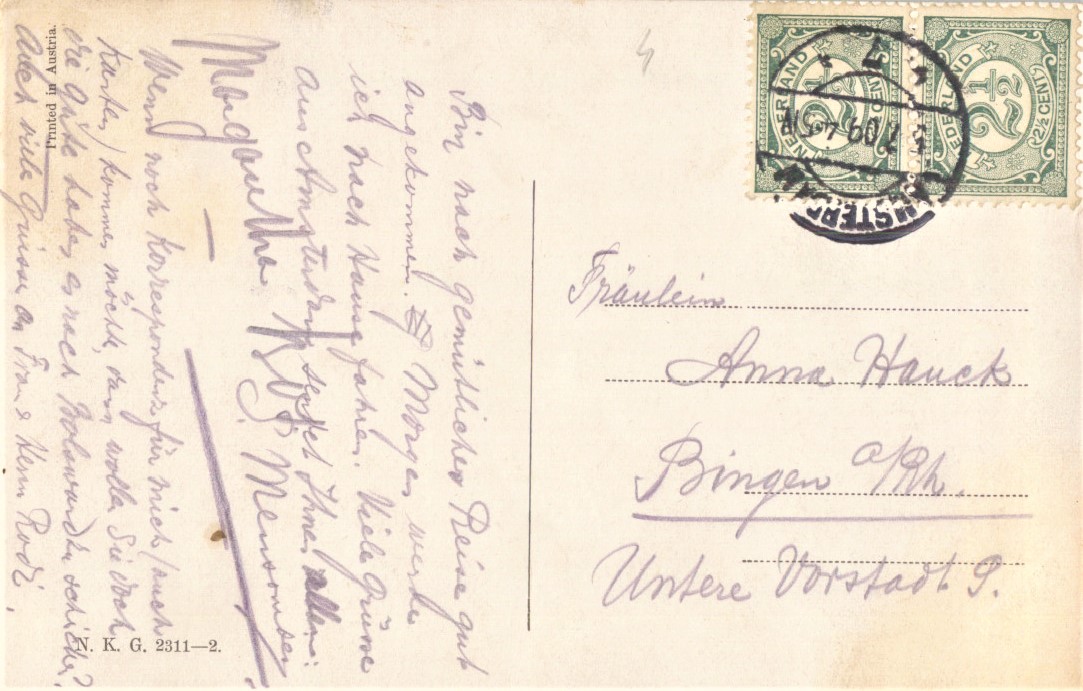 Bin nach gemütlicher Reise gut
angekommen. Morgen werde
ich nach Hause fahren. Viele Grüsse
aus Amsterdam sendet Ihnen allen:
Margaretha
Wenn noch Korrespondenz für mich (auch
Karten) kommen möchte, dann wollen Sie doch
die Güte haben es nach schicken?
Auch viele Grüsse an Frau & Herrn Rodi.
Printed in Austria.
N. K. G. 2311—2.
NEDERLAND
2½
(2½ CENT)
NEDERLAND
2½
(2½ CENT)
AMSTERDAM
Fräulein
Anna Hauck
Bingen a/Rh.
Untere Vorstadt 9.